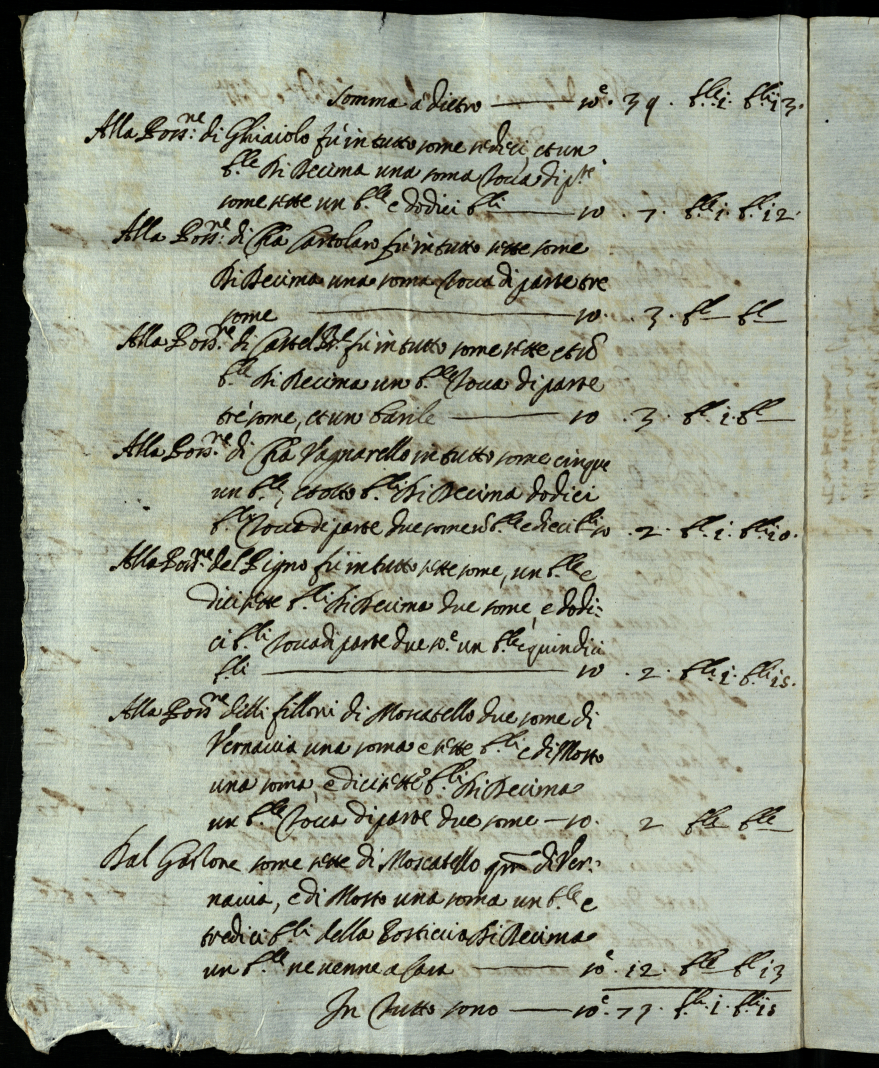 Somma a dietro —— some. 39. b.le 1. b.li 13.
Alla Poss.ne di Ghiaiolo fù in tutto some sedici, et un
b.le Di Decima una soma Tocca di p.te
some sette un b.le e dodici b.li —— so .7. b.le 1. b.li 12.
Alla Poss.ne di Cha Cartolaro fù in tutto sette some
Di Decima una soma Tocca di parte tre
some —— so. .3. b.l— b.l—
Alla Poss.ne di Castel fù in tutto some sette et
b.le Di Decima un b.le Tocca di parte
tre some, et un barile —— so .3. b.l 1. b.l—
Alla Poss.ne di Cha Vagnarello in tutto some cinque
un b.le, et otto b.li Di Decima dodici
b.li Tocca di parte due some b.le e dieci b.li so .2. b.l 1. b.li 10.
Alla Poss.ne del Pigno fù in tutto sette some, un b.le e
dicisette b.li Di Decima due some e dodi-
ci b.li Tocca di parte due so.e un b.le e quindici
b.li —— so .2. b.le 1. b.li 15.
Alla Poss.ne delli filloni di Moscatello due some di
Vernaccia una soma e sette b.li e di Mosto
una soma, e dicisette b.li Di Decima
un b.le Tocca di parte due some — so. 2 b.le b.le—
Dal Gastone some sette di Moscatello di Ver-
naccia, e di Mosto una soma un b.le e
tredici b.li della Posticcia Di Decima
un b.le ne venne a Casa —— so.e .12. b.le b.l 13
In Tutto sono —— so.e .77. b.le 1. b.li 15